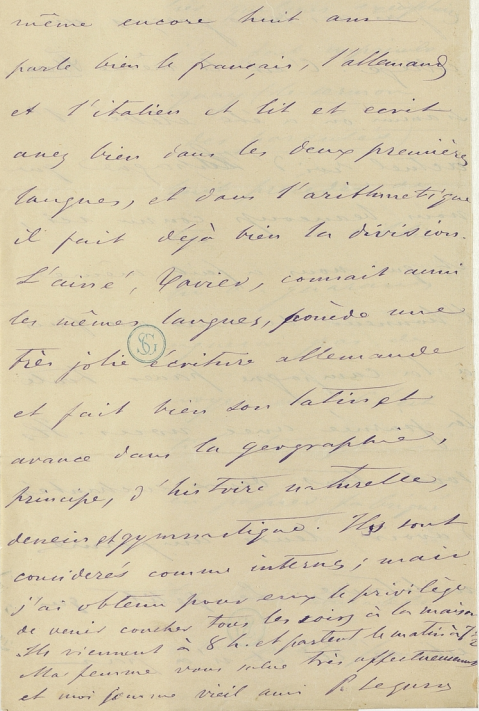 même encore huit ans
parle bien le français, l'allemand
et l'italien et lit et ecrit
assez bien dans les deux premières
langues, et dans l'arithmetique
il fait déjà bien la division.
L'ainé, Xavier, connait aussi
les mêmes langues, possède une
très jolie écriture allemande
et fait bien son latin et
avance dans la geographie,
principe, d'histoire naturelle,
dessein et gymnastique. Ils sont
considerés comme internes; mais
j'ai obtenu pour eux le privilège
de venir coucher tous les soirs à la maison
Ils viennent à 8 h. et partent le matin à 7 1/2
Ma femme vous salue très affectueusement
et moi vieil ami P.
SG